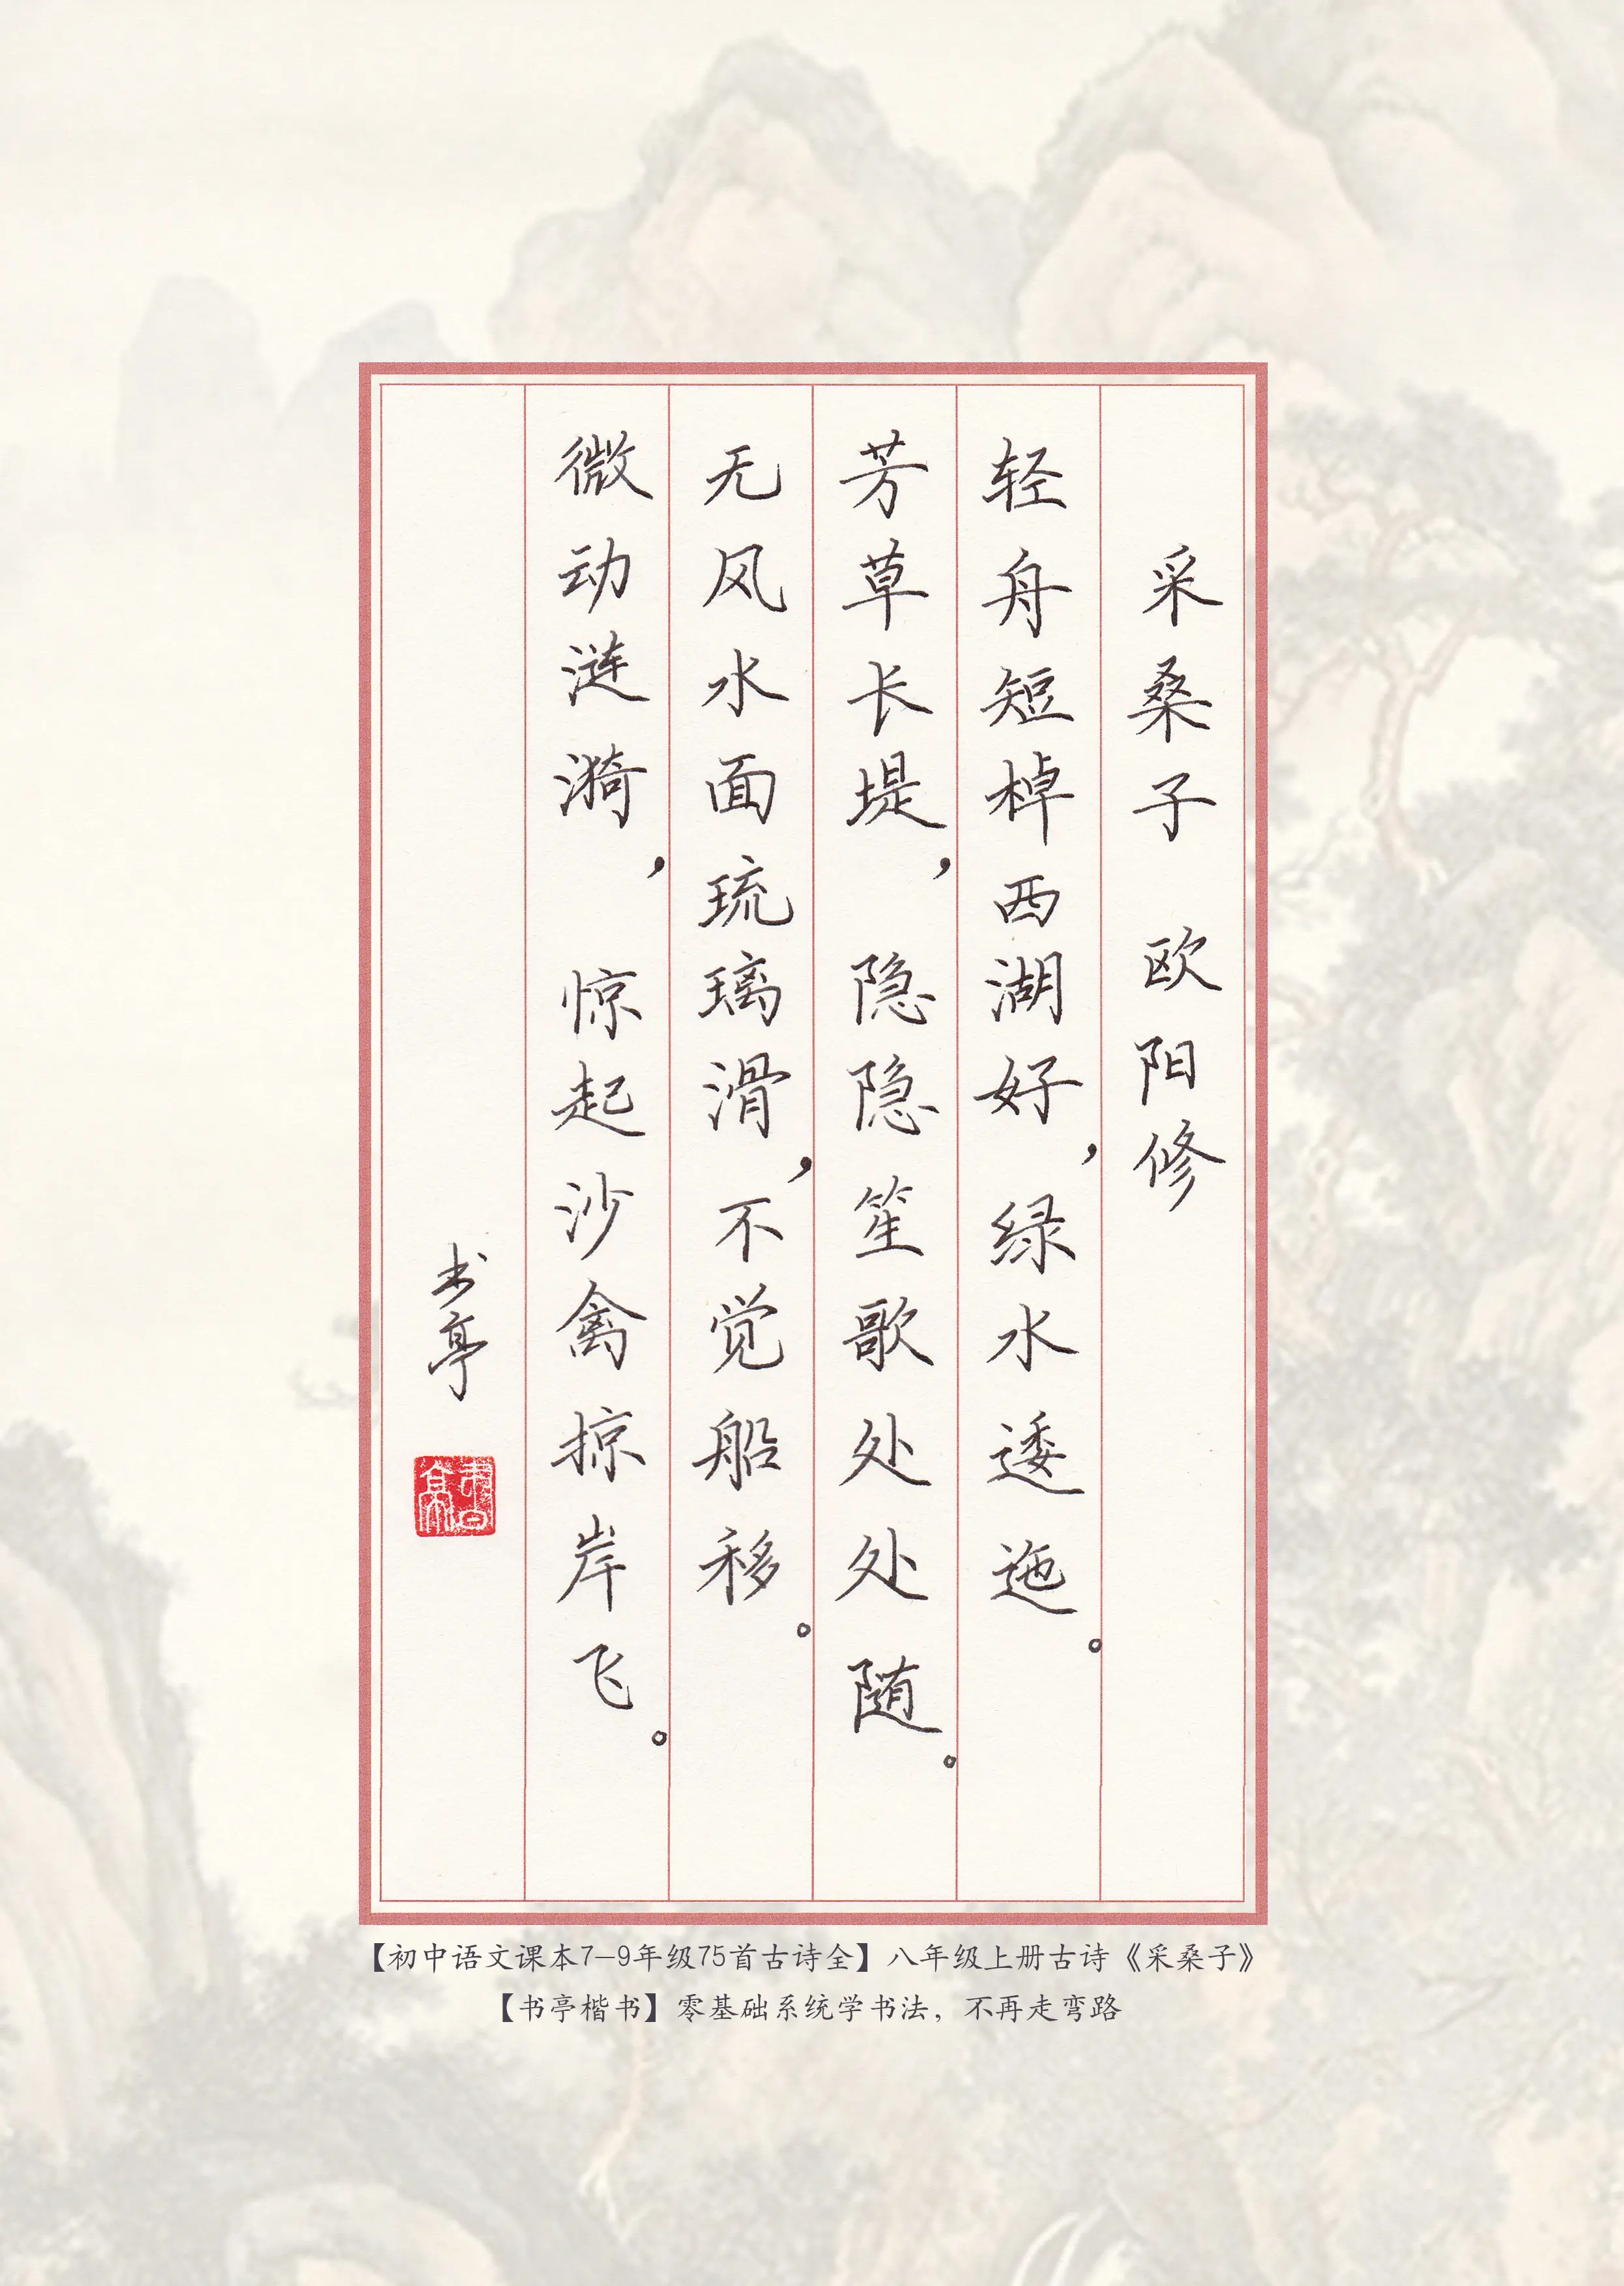 采桑子 欧阳修
轻舟短棹西湖好，绿水逶迤。
芳草长堤，隐隐笙歌处处随。
无风水面琉璃滑，不觉船移。
微动涟漪，惊起沙禽掠岸飞。
书亭
書亭
【初中语文课本7-9年级75首古诗全】八年级上册古诗《采桑子》
【书亭楷书】零基础系统学书法，不再走弯路